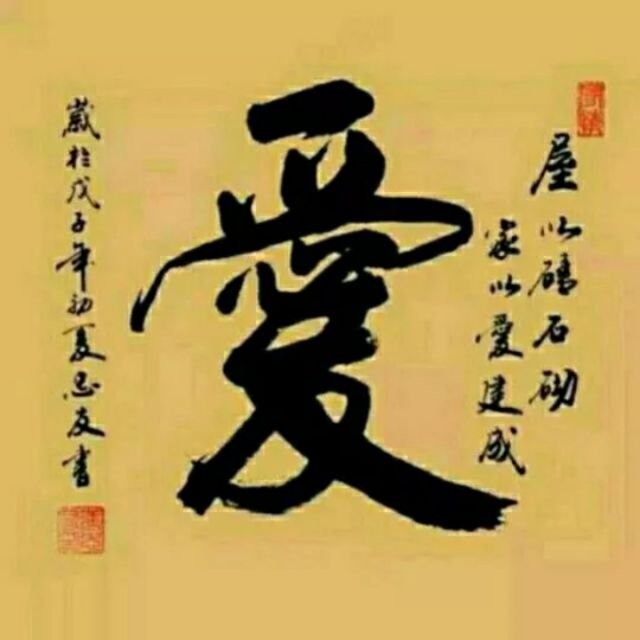 屋以磚石砌
家以愛建成
愛
歲於戊子年初夏忠友書